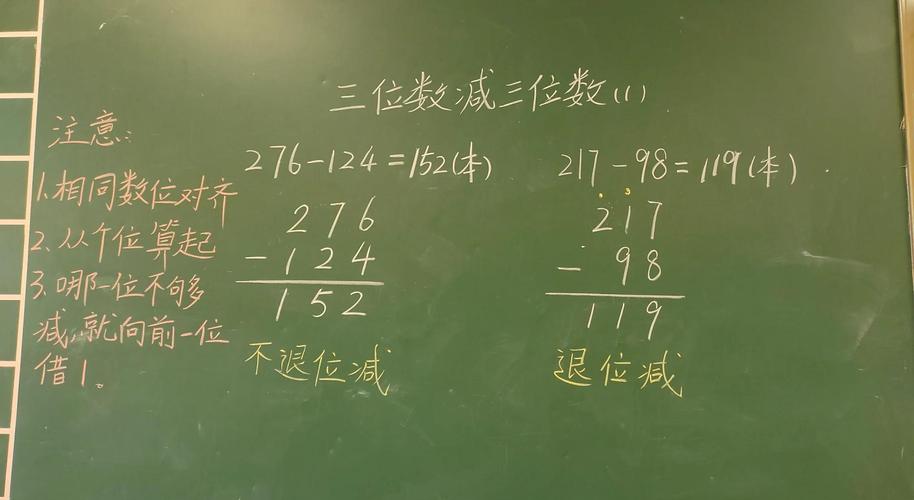 三位数减三位数(1)
注意:
1.相同数位对齐
2.从个位算起
3.哪一位不够
减,就向前一位
借1。
276-124=152(本)
276
-124
152
不退位减
217-98=119(本)
217
-98
119
退位减